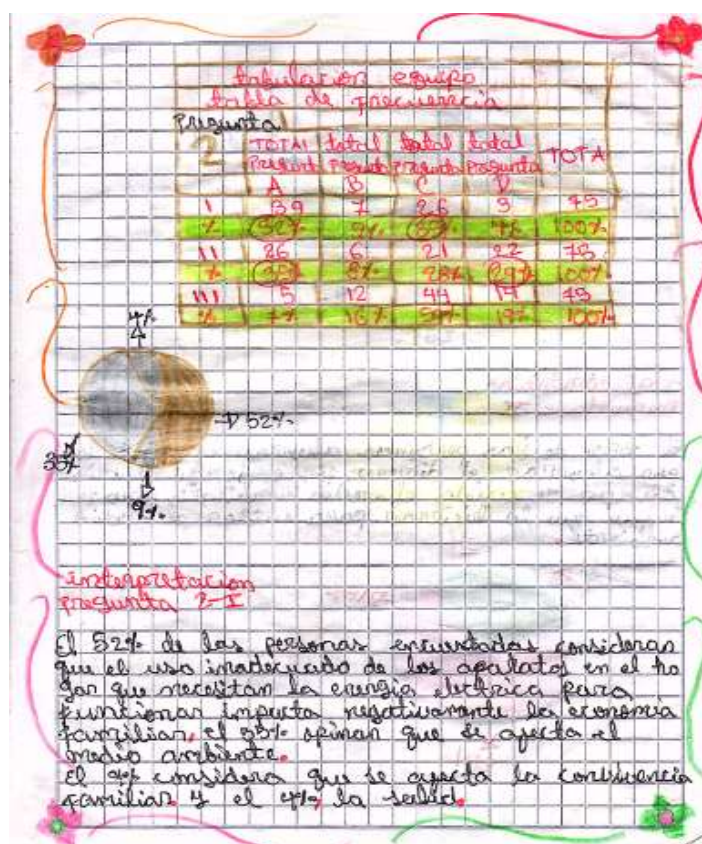 tabulacion equipo
tabla de frecuencia
Pregunta
2 TOTAl total total total TOTA
Pregunta Pregunta Pregunta
A B C D
I 39 7 26 3 75
% 52% 9% 35% 4% 100%
II 26 6 21 22 75
% 35% 8% 28% 29% 100%
III 5 12 44 14 75
% 7% 16% 59% 19% 100%
4%
52%
35%
9%
interpretacion
pregunta 2-I
El 52% de las personas encuestadas consideran
que el uso inadecuado de los aparatos en el ho
gar que necesitan la energia electrica para
funcionar impacta negativamente la economia
familiar, el 35% opinan que se afecta el
medio ambiente.
El 9% considera que se afecta la convivencia
familiar y el 4% la salud.